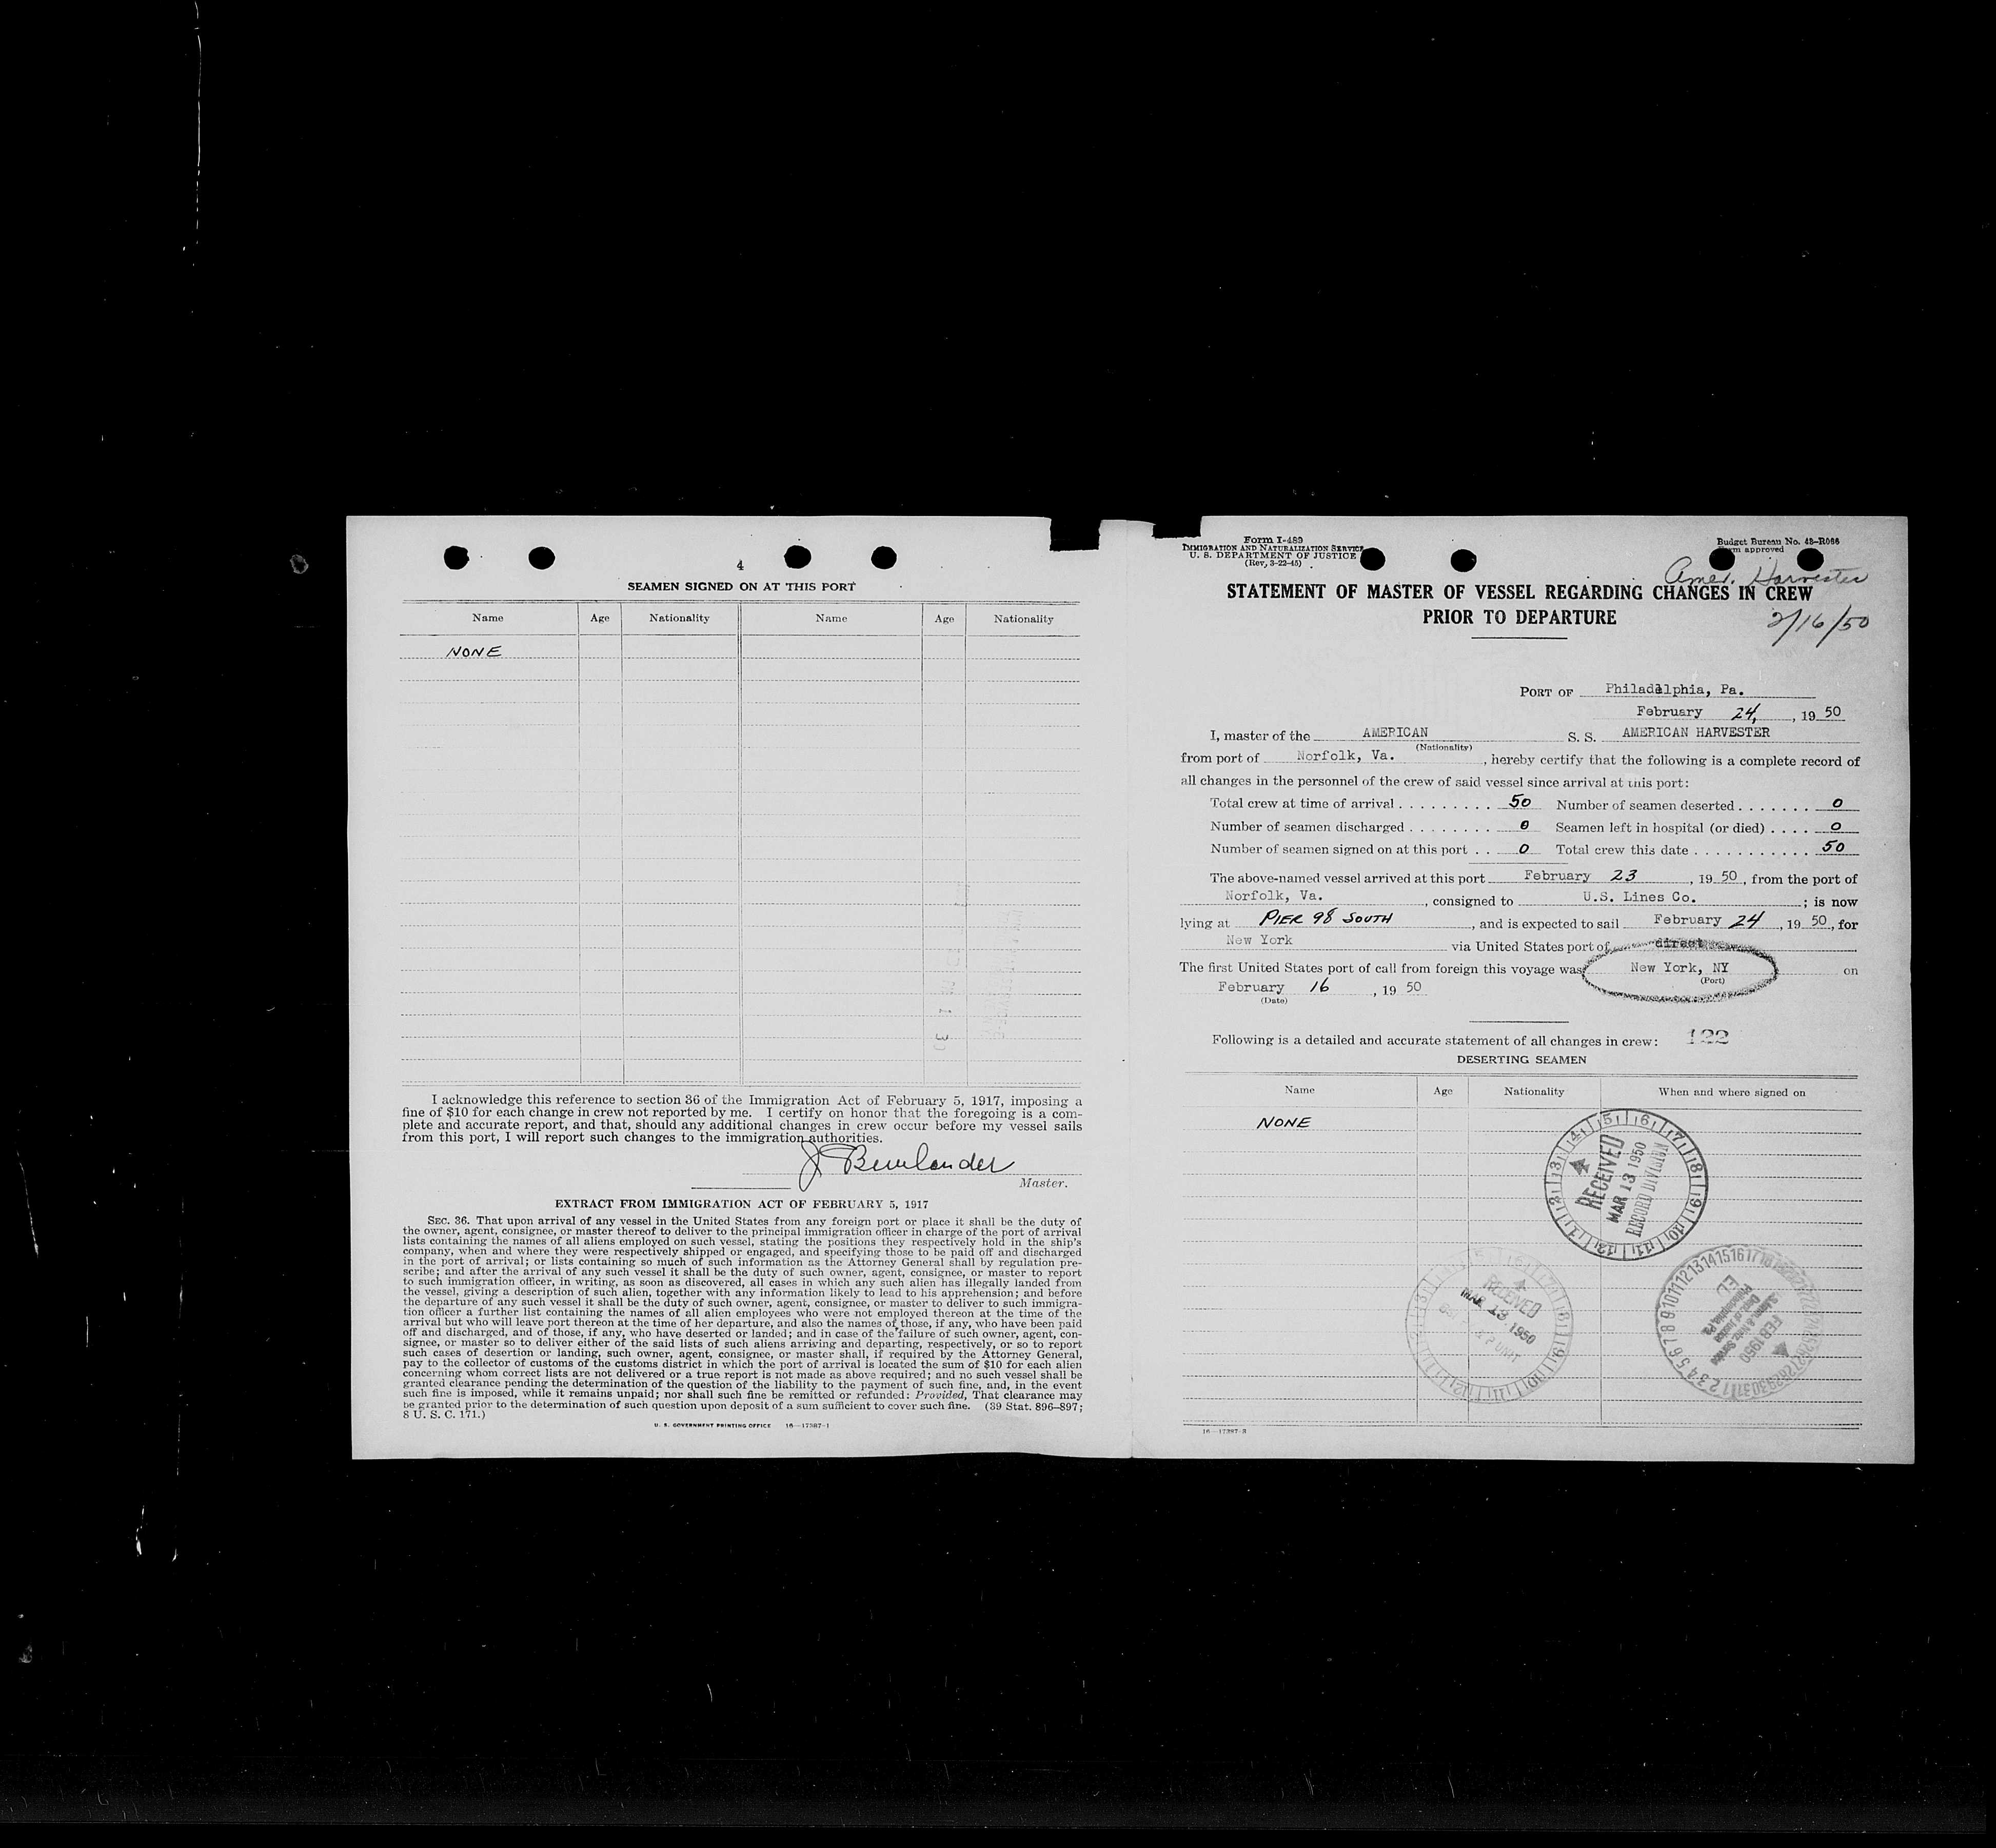 4
SEAMEN SIGNED ON AT THIS PORT
Name Age Nationality Name Age Nationality
NONE
I acknowledge this reference to section 36 of the Immigration Act of February 5, 1917, imposing a
fine of $10 for each change in crew not reported by me. I certify on honor that the foregoing is a com-
plete and accurate report, and that, should any additional changes in crew occur before my vessel sails
from this port, I will report such changes to the immigration authorities.
Master.
EXTRACT FROM IMMIGRATION ACT OF FEBRUARY 5, 1917
SEC. 36. That upon arrival of any vessel in the United States from any foreign port or place it shall be the duty of
the owner, agent, consignee, or master thereof to deliver to the principal immigration officer in charge of the port of arrival
lists containing the names of all aliens employed on such vessel, stating the positions they respectively hold in the ship's
company, when and where they were respectively shipped or engaged, and specifying those to be paid off and discharged
in the port of arrival; or lists containing so much of such information as the Attorney General shall by regulation pre-
scribe; and after the arrival of any such vessel it shall be the duty of such owner, agent, consignee, or master to report
to such immigration officer, in writing, as soon as discovered, all cases in which any such alien has illegally landed from
the vessel, giving a description of such alien, together with any information likely to lead to his apprehension; and before
the departure of any such vessel it shall be the duty of such owner, agent, consignee, or master to deliver to such immigra-
tion officer a further list containing the names of all alien employees who were not employed thereon at the time of the
arrival but who will leave port thereon at the time of her departure, and also the names of those, if any, who have been paid
off and discharged, and of those, if any, who have deserted or landed; and in case of the failure of such owner, agent, con-
signee, or master so to deliver either of the said lists of such aliens arriving and departing, respectively, or so to report
such cases of desertion or landing, such owner, agent, consignee, or master shall, if required by the Attorney General,
pay to the collector of customs of the customs district in which the port of arrival is located the sum of $10 for each alien
concerning whom correct lists are not delivered or a true report is not made as above required; and no such vessel shall be
granted clearance pending the determination of the question of the liability to the payment of such fine, and, in the event
such fine is imposed, while it remains unpaid; nor shall such fine be remitted or refunded: Provided, That clearance may
be granted prior to the determination of such question upon deposit of a sum sufficient to cover such fine. (39 Stat. 896–897;
8 U. S. C. 171.)
U. S. GOVERNMENT PRINTING OFFICE 16—17387-1
Form I-489
IMMIGRATION AND NATURALIZATION SERVICE
U. S. DEPARTMENT OF JUSTICE
(Rev. 3-22-45)
Budget Bureau No. 43-R066
Form approved
Amer. Harvester
STATEMENT OF MASTER OF VESSEL REGARDING CHANGES IN CREW
PRIOR TO DEPARTURE
2/16/50
PORT OF Philadelphia, Pa.
February 24, , 19 50
I, master of the AMERICAN S. S. AMERICAN HARVESTER
(Nationality)
from port of Norfolk, Va. , hereby certify that the following is a complete record of
all changes in the personnel of the crew of said vessel since arrival at this port:
Total crew at time of arrival . . . . . . . . . 50 Number of seamen deserted . . . . . . . 0
Number of seamen discharged . . . . . . . . 0 Seamen left in hospital (or died) . . . . 0
Number of seamen signed on at this port . . 0 Total crew this date . . . . . . . . . . . 50
The above-named vessel arrived at this port February 23 , 19 50, from the port of
Norfolk, Va. , consigned to U.S. Lines Co. ; is now
lying at PIER 98 SOUTH , and is expected to sail February 24 , 19 50, for
New York via United States port of direct
The first United States port of call from foreign this voyage was New York, NY on
(Port)
February 16 , 19 50
(Date)
Following is a detailed and accurate statement of all changes in crew: 122
DESERTING SEAMEN
Name Age Nationality When and where signed on
NONE
RECEIVED
MAR 13 1950
RECORD DIVISION
RECEIVED
MAR 13 1950
FEB 1950
16—17387-3